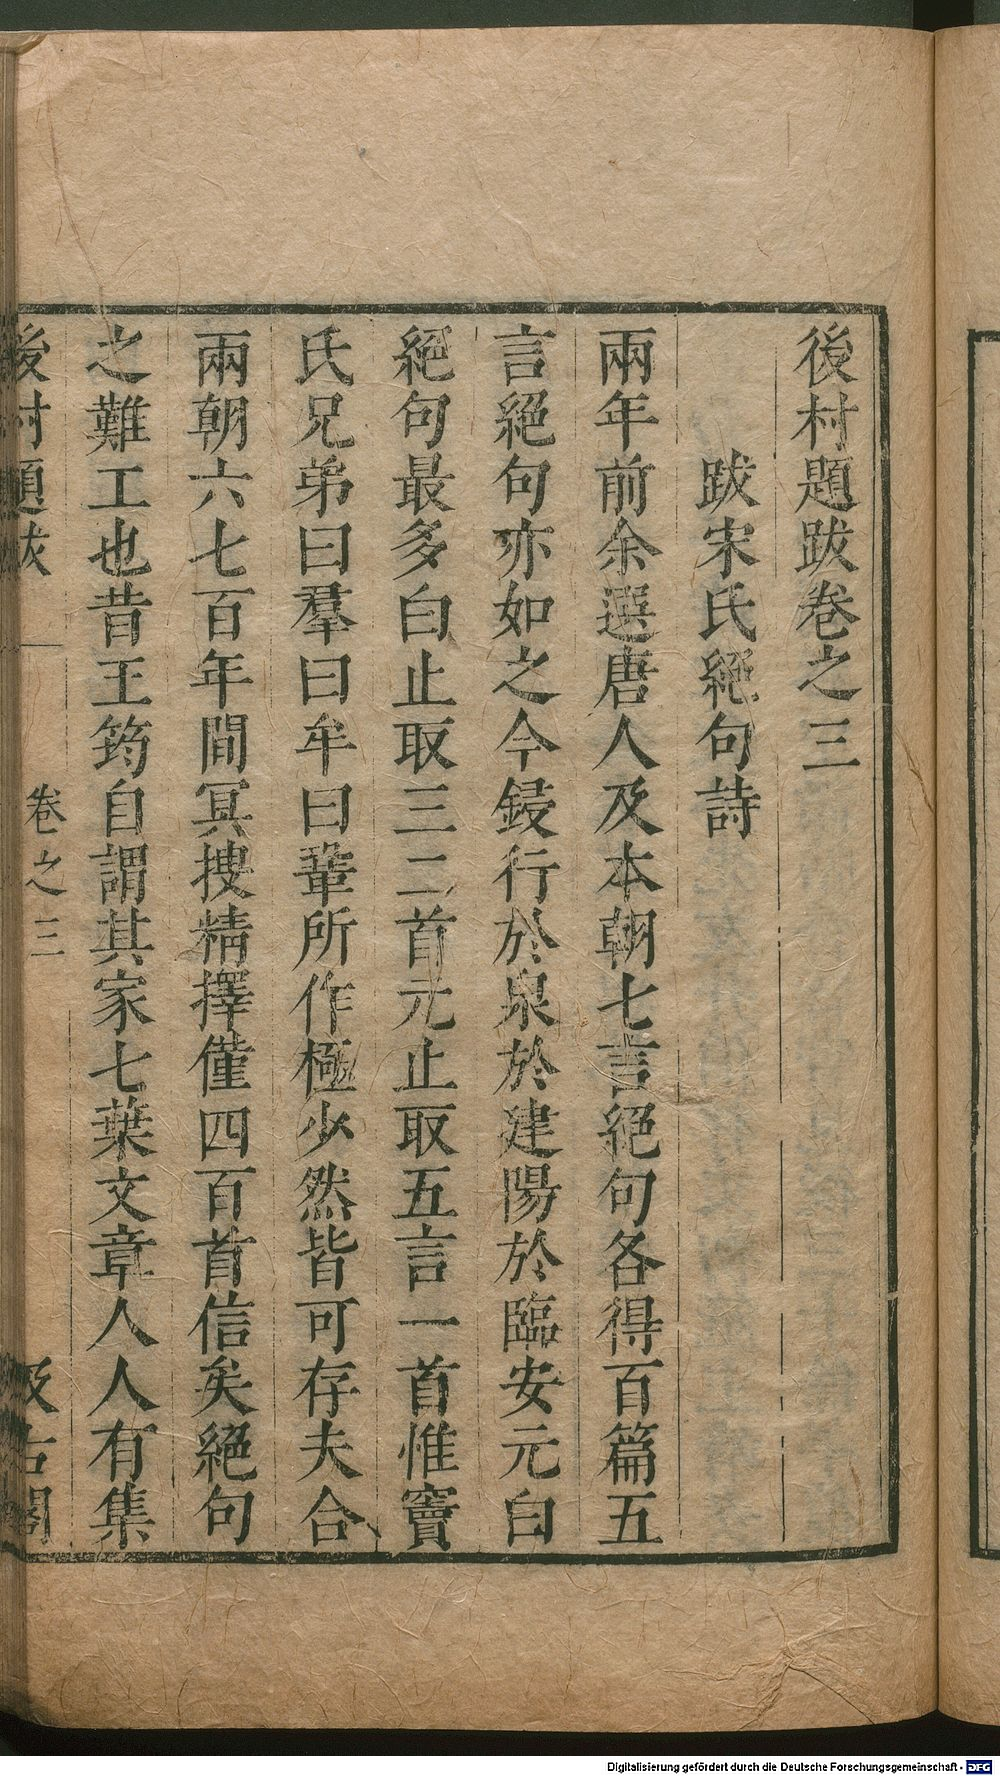 後村題跋卷之三
跋宋氏絕句詩
兩年前余選唐人及本朝七言絕句各得百篇五
言絕句亦如之今鋟行於泉於建陽於臨安元白
絕句最多白止取三二首元止取五言一首惟竇
氏兄弟曰羣曰牟曰鞏所作極少然皆可存夫合
兩朝六七百年間冥搜精擇僅四百首信矣絕句
之難工也昔王筠自謂其家七葉文章人人有集
後村題跋 卷之三 汲古閣
Digitalisierung gefördert durch die Deutsche Forschungsgemeinschaft - DFG